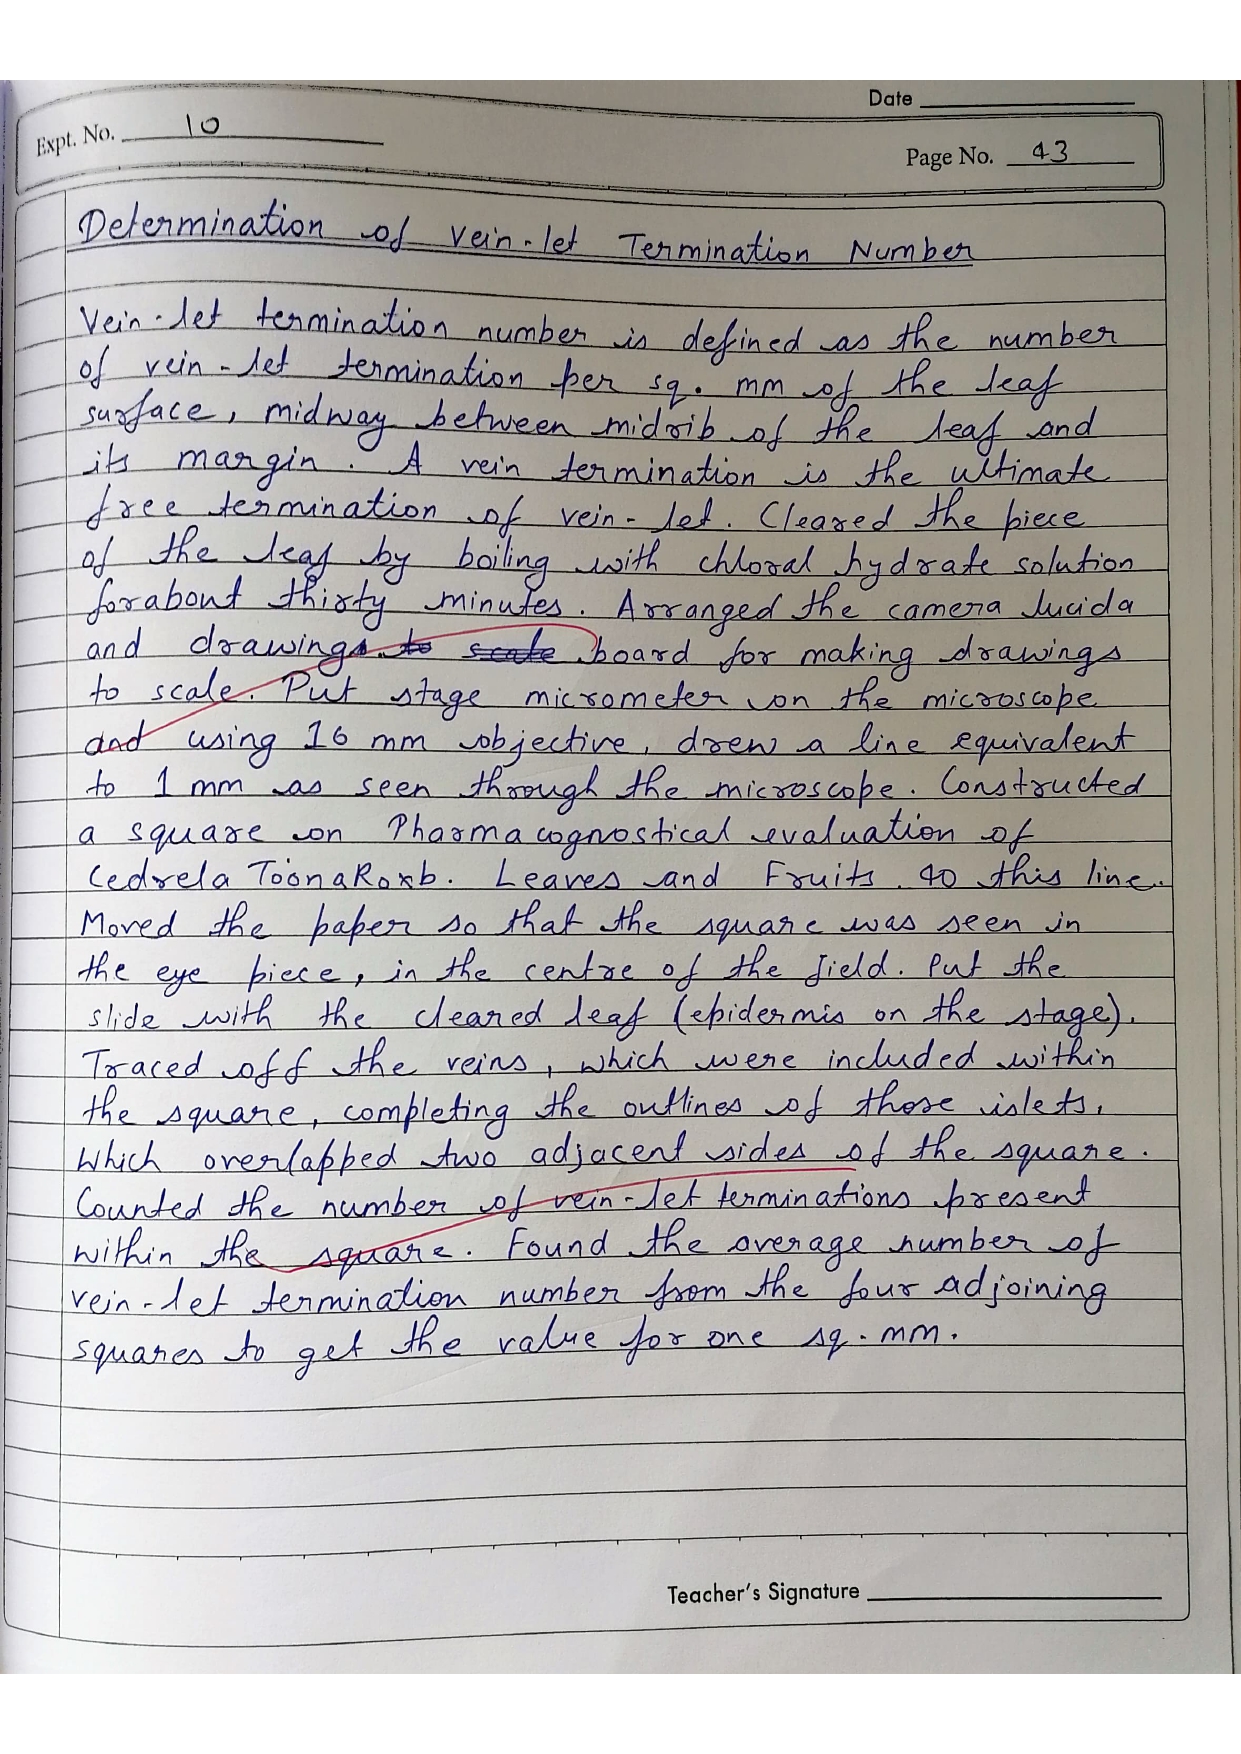 Date
Expt. No. 10
Page No. 43
Determination of Vein-let Termination Number
Vein-let termination number is defined as the number
of vein-let termination per sq. mm of the leaf
surface, midway between midrib of the leaf and
its margin. A vein termination is the ultimate
free termination of vein-let. Cleared the piece
of the leaf by boiling with chloral hydrate solution
forabout thirty minutes. Arranged the camera lucida
and drawings to scale board for making drawings
to scale. Put stage micrometer on the microscope
and using 16 mm objective, drew a line equivalent
to 1 mm as seen through the microscope. Constructed
a square on Pharmacognostical evaluation of
Cedrela ToonaRoxb. Leaves and Fruits 40 this line.
Moved the paper so that the square was seen in
the eye piece, in the centre of the field. Put the
slide with the cleared leaf (epidermis on the stage).
Traced off the veins, which were included within
the square, completing the outlines of those islets,
Which overlapped two adjacent sides of the square.
Counted the number of vein-let terminations present
within the square. Found the average number of
vein-let termination number from the four adjoining
squares to get the value for one sq. mm.
Teacher's Signature